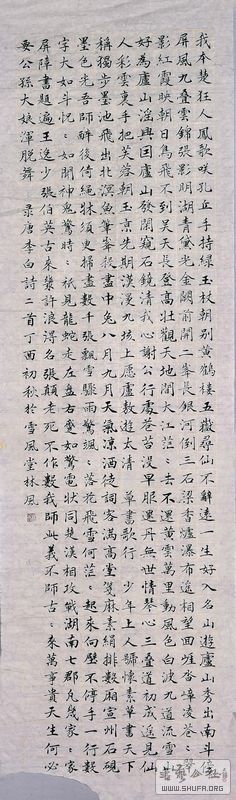 我本楚狂人鳳歌咲孔丘手持綠玉杖朝別黃鶴樓五嶽尋仙不辭遠一生好入名山遊廬山秀出南斗傍
屏風九疊雲錦張影明湖青黛光金闕前開二峯長銀河倒三石梁香爐瀑布遙相望回崖沓嶂凌蒼〻翠
影紅霞映朝日鳥飛不到吳天長登高壯觀天地間大江茫〻去不還黃雲萬里動風色白波九道流雪山
好為廬山謠興因廬山發閑窺石鏡清我心謝公行處蒼苔沒早服還丹無世情琴心三疊道初成遙見仙
人彩雲裏手把芙蓉朝玉京先期漫漫九垓上愿盧敖遊太清 草書歌行 少年上人號懷素草書天下
稱獨步墨池飛出北溟魚筆鋒殺盡中山兔八月九月天氣涼酒徒詞客滿高堂牋麻素絹排數廂宣州石硯
墨色光吾師醉後倚繩牀須臾掃盡數千張飄風驟雨驚颯〻落花飛雪何茫〻起來向壁不停手一行數
字大如斗怳〻如聞神鬼驚時〻祇見龍蛇走左盤右蹙如驚電狀同楚漢相攻戰湖南七郡凡幾家〻家
屏障書題遍王逸少張伯英古來幾許浪得名張顛老死不作數我師此義不師古〻來萬事貴天生何必
要公孫大娘渾脫舞 录唐李白詩二首丁酉初秋於雪風堂林風
WWW.SHUFA.ORG